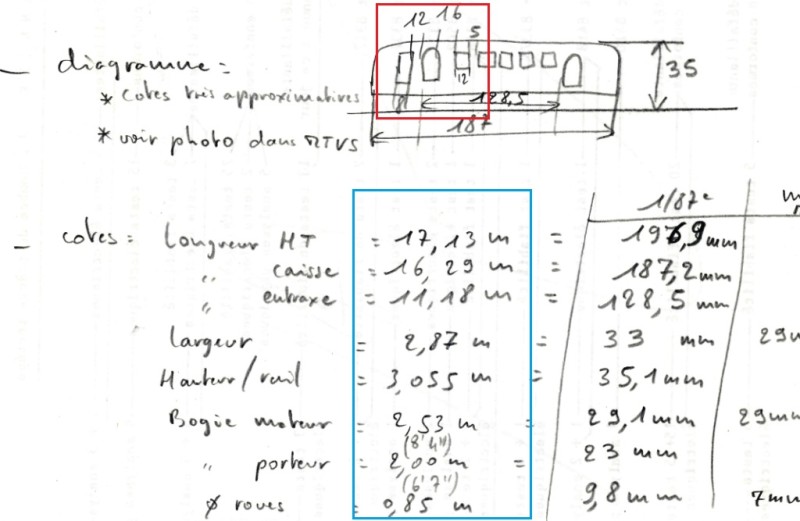 12 16
5
— diagramme =
12
35
* cotes très approximatives
128,5
187
* voir photo dans RTVS
1/87e
— cotes = Longueur HT = 17,13 m = 196,9 mm
" caisse = 16,29 m = 187,2 mm
" entraxe = 11,18 m = 128,5 mm
Largeur = 2,87 m = 33 mm 29 m
Hauteur/rail = 3,055 m = 35,1 mm
Bogie moteur = 2,53 m = 29,1 mm 29 mm
(8'4")
" porteur = 2,00 m = 23 mm
(6'7")
ø roues = 0,85 m 9,8 mm 7 mm